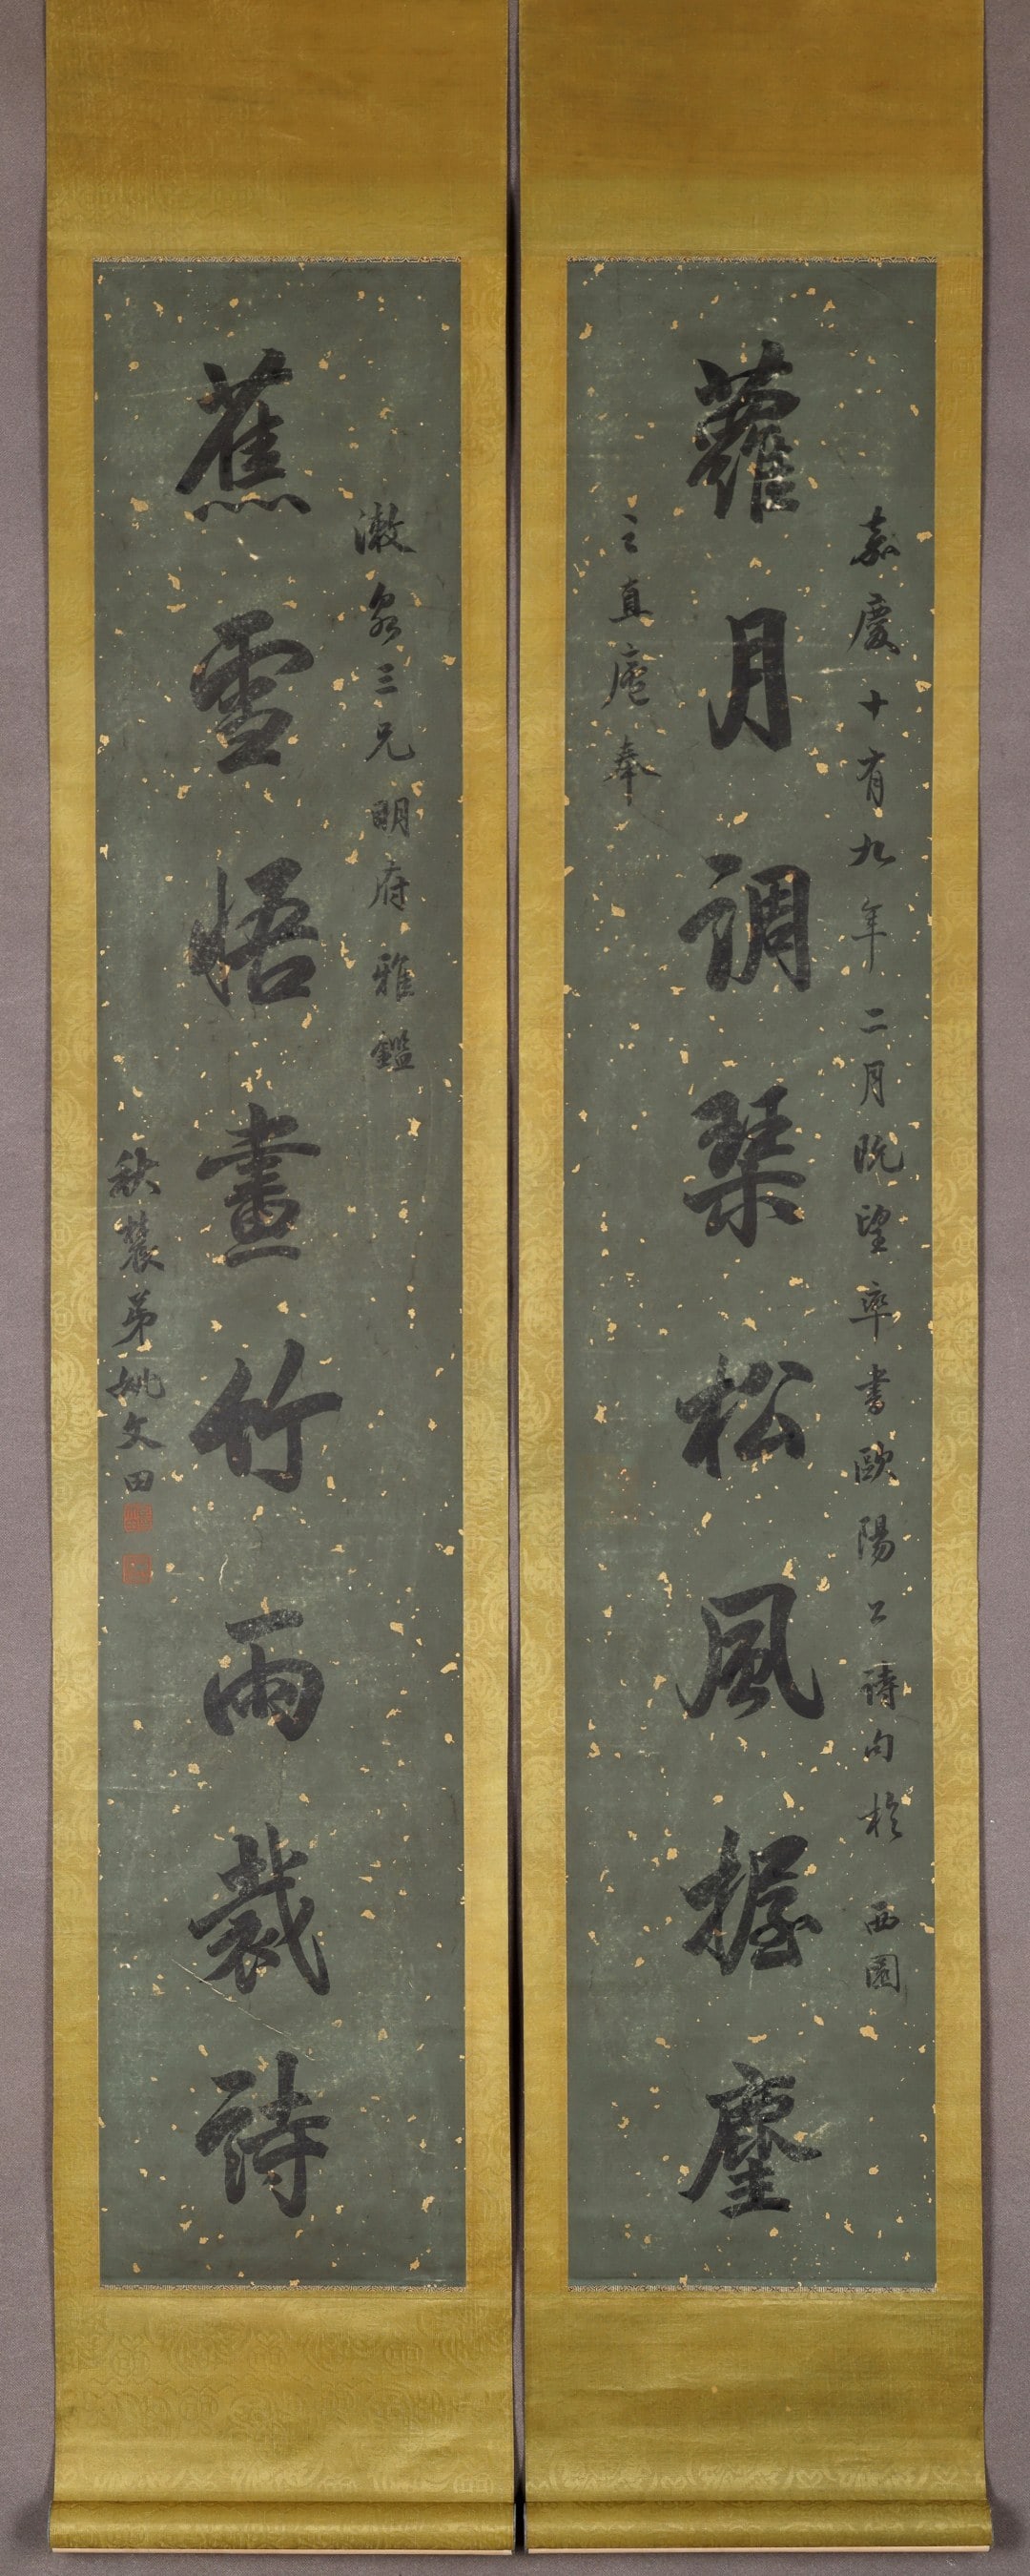 嘉慶十有九年二月既望率書歐陽公詩句於西園
蘿月調琴松風握麈
之直庵奉
漱泉三兄明府雅鑑
蕉雪悟畫竹雨裁詩
秋農弟姚文田